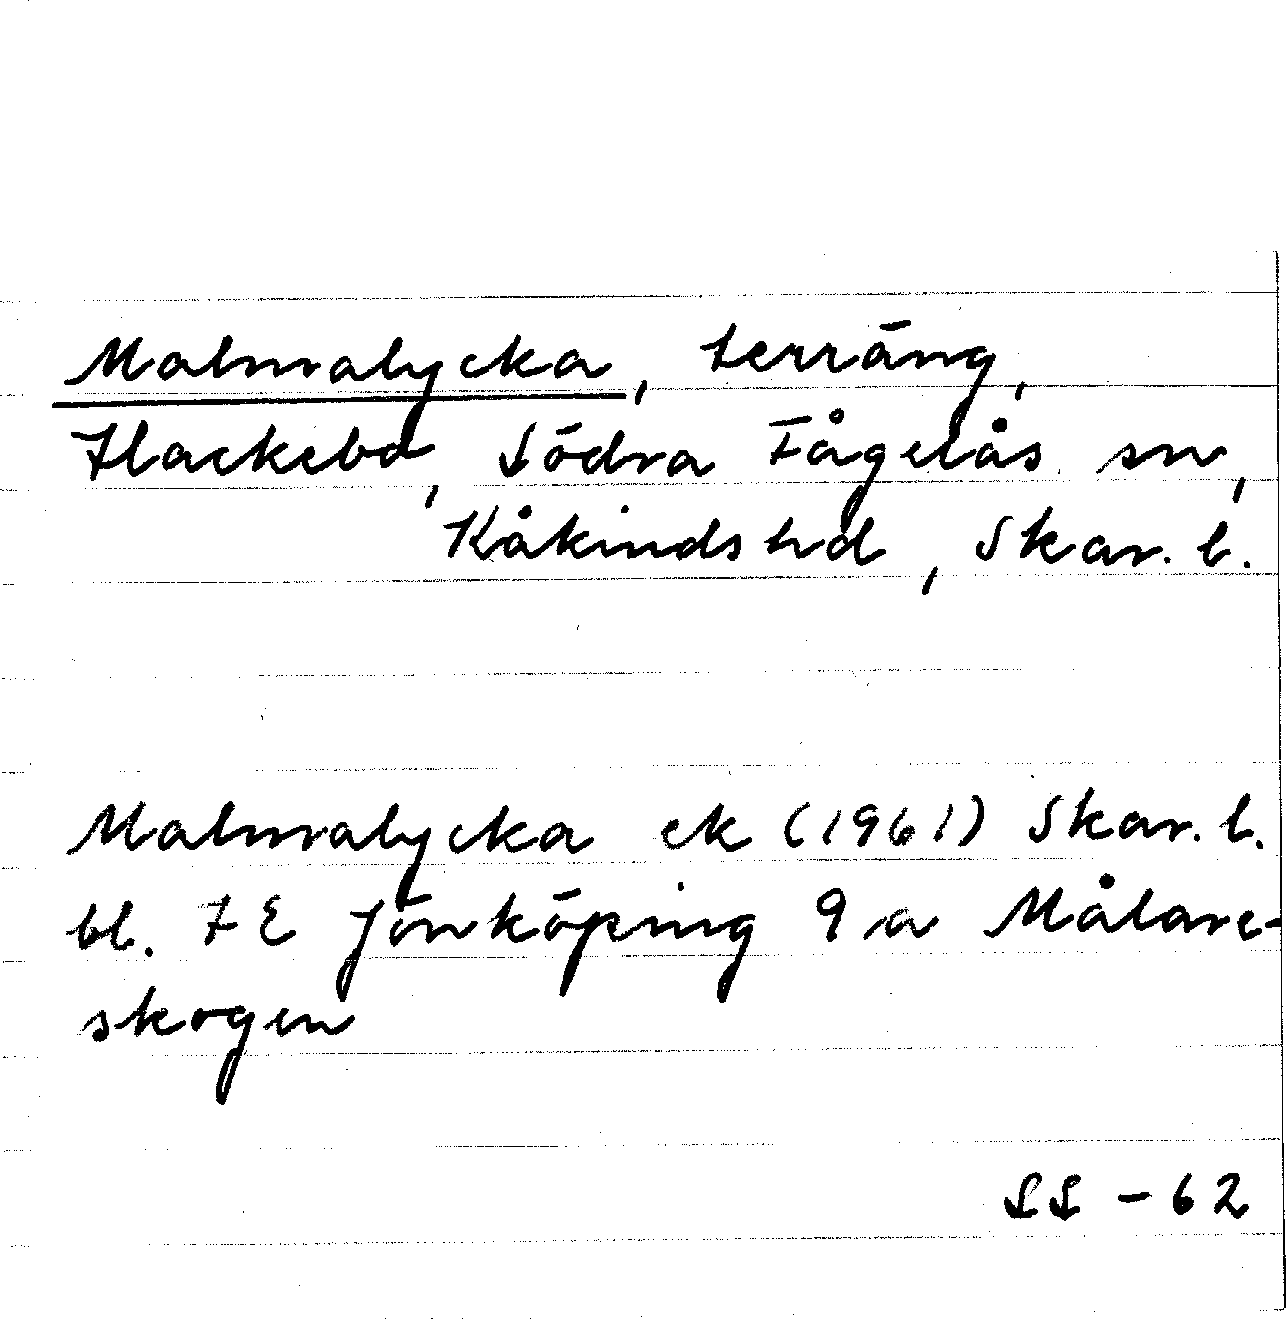 Malmalycka, terräng,
Hackebo, Södra Fågelås sn,
Kåkinds hd, Skar. l.
Malmalycka ek (1961) Skar. l.
bl. 7 E Jönköping 9 a Målare-
skogen
SS - 62